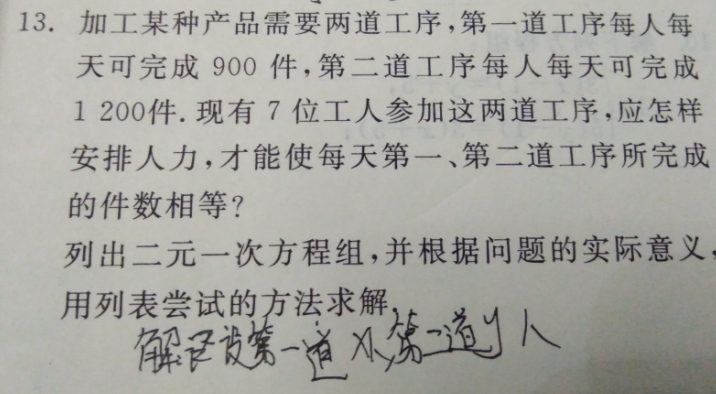 13. 加工某种产品需要两道工序,第一道工序每人每
天可完成 900 件,第二道工序每人每天可完成
1 200件. 现有 7 位工人参加这两道工序,应怎样
安排人力,才能使每天第一、第二道工序所完成
的件数相等?
列出二元一次方程组,并根据问题的实际意义,
用列表尝试的方法求解.
解 设第一道 x人,第二道y人